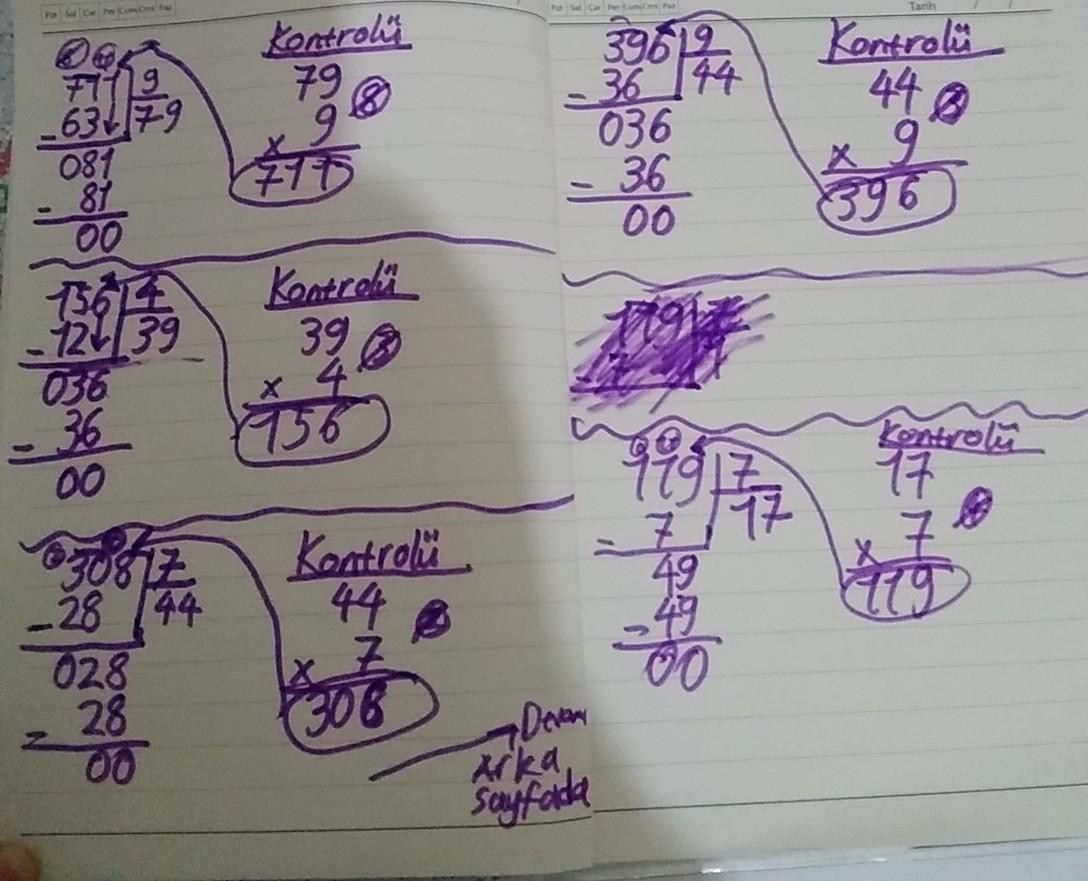 Pzt Sal Çar Per Cum Cmt Paz
711 9
- 63 79
081
- 81
00
Kontrolü
79
9
x
711
156 4
- 12 39
036
- 36
00
Kontrolü
39
x 4
156
308 7
- 28 44
028
- 28
00
Kontrolü
44
x 7
308
Devamı
Arka
Sayfada
Pzt Sal Çar Per Cum Cmt Paz
Tarih / /
396 9
- 36 44
036
- 36
00
Kontrolü
44
x 9
396
119 7
- 7 17
49
- 49
00
Kontrolü
17
x 7
119